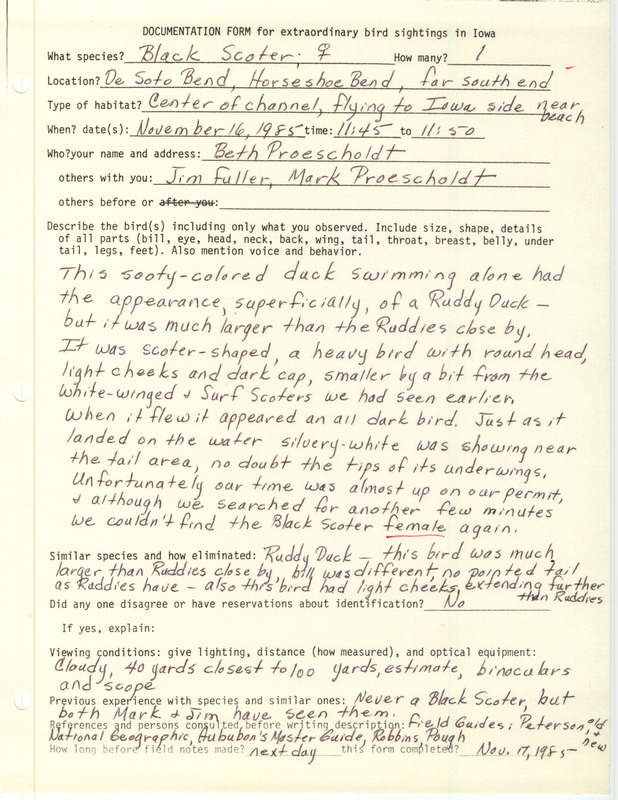 DOCUMENTATION FORM for extraordinary bird sightings in Iowa
What species? Black Scoter; ♀ How many? 1
Location? De Soto Bend, Horseshoe Bend, far south end
Type of habitat? Center of channel, flying to Iowa side near
beach
When? date(s): November 16, 1985 time: 11:45 to 11:50
Who? your name and address: Beth Proescholdt
others with you: Jim Fuller, Mark Proescholdt
others before or after you:
Describe the bird(s) including only what you observed. Include size, shape, details
of all parts (bill, eye, head, neck, back, wing, tail, throat, breast, belly, under
tail, legs, feet). Also mention voice and behavior.
This sooty-colored duck swimming alone had
the appearance, superficially, of a Ruddy Duck —
but it was much larger than the Ruddies close by.
It was scoter-shaped, a heavy bird with round head,
light cheeks and dark cap, smaller by a bit from the
White-winged & Surf Scoters we had seen earlier.
When it flew it appeared an all dark bird. Just as it
landed on the water silvery-white was showing near
the tail area, no doubt the tips of its underwings.
Unfortunately our time was almost up on our permit,
& although we searched for another few minutes
we couldn't find the Black Scoter female again.
Similar species and how eliminated: Ruddy Duck — this bird was much
larger than Ruddies close by, bill was different, no pointed tail
as Ruddies have — also this bird had light cheeks, extending further
than Ruddies
Did any one disagree or have reservations about identification? No
If yes, explain:
Viewing conditions: give lighting, distance (how measured), and optical equipment:
Cloudy, 40 yards closest to 100 yards, estimate, binoculars
and scope
Previous experience with species and similar ones: Never a Black Scoter, but
both Mark & Jim have seen them.
References and persons consulted, before writing description: Field Guides: Peterson, old
+ new
National Geographic, Aububon's Master Guide, Robbins, Pough
How long before field notes made? next day this form completed? Nov. 17, 1985